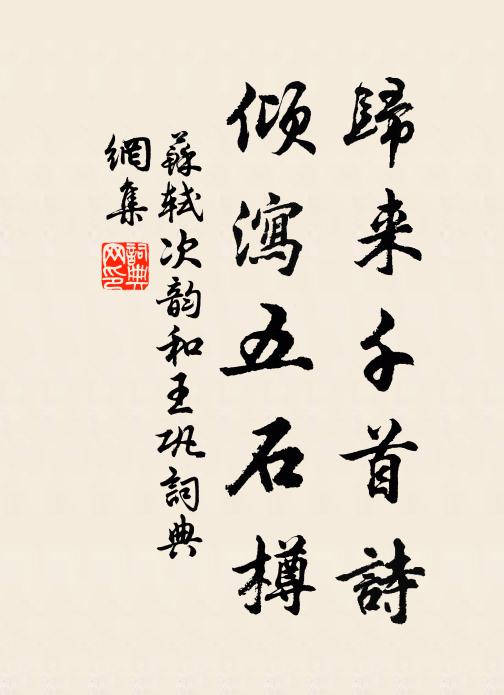 歸来千首詩
傾瀉五石樽
蘇軾次韵和王巩詞典
網集
詞典
网印